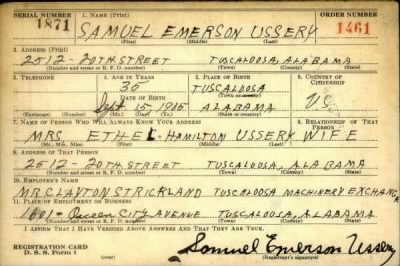 SERIAL NUMBER 1. NAME (Print) ORDER NUMBER
1871 SAMUEL EMERSON USSERY 1461
(First) (Middle) (Last)
2. ADDRESS (Print)
2512-20TH STREET TUSCALOOSA, ALABAMA
(Number and street or R. F. D. number) (Town) (County) (State)
3. TELEPHONE 4. AGE IN YEARS 5. PLACE OF BIRTH 6. COUNTRY OF CITIZENSHIP
35 TUSCALOOSA
DATE OF BIRTH (Town or county)
Sept 15, 1905 ALABAMA U.S.
(Exchange) (Number) (Mo.) (Day) (Yr.) (State or country)
7. NAME OF PERSON WHO WILL ALWAYS KNOW YOUR ADDRESS 8. RELATIONSHIP OF THAT PERSON
MRS. ETHEL-HAMILTON USSERY WIFE
(Mr., Mrs., Miss) (First) (Middle) (Last)
9. ADDRESS OF THAT PERSON
2512-20TH STREET TUSCALOOSA, ALABAMA
(Number and street or R. F. D. number) (Town) (County) (State)
10. EMPLOYER'S NAME
MR. CLAYTON STRICKLAND TUSCALOOSA MACHINERY EXCHANGE
11. PLACE OF EMPLOYMENT OR BUSINESS
1601- Queen CITY AVENUE TUSCALOOSA, ALABAMA
(Number and street or R. F. D. number) (Town) (County) (State)
I AFFIRM THAT I HAVE VERIFIED ABOVE ANSWERS AND THAT THEY ARE TRUE.
REGISTRATION CARD
D. S. S. Form 1 Samuel Emerson Ussery
(Registrant's signature)